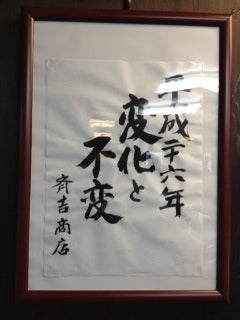 平成二十六年
変化と
不変
斉吉商店